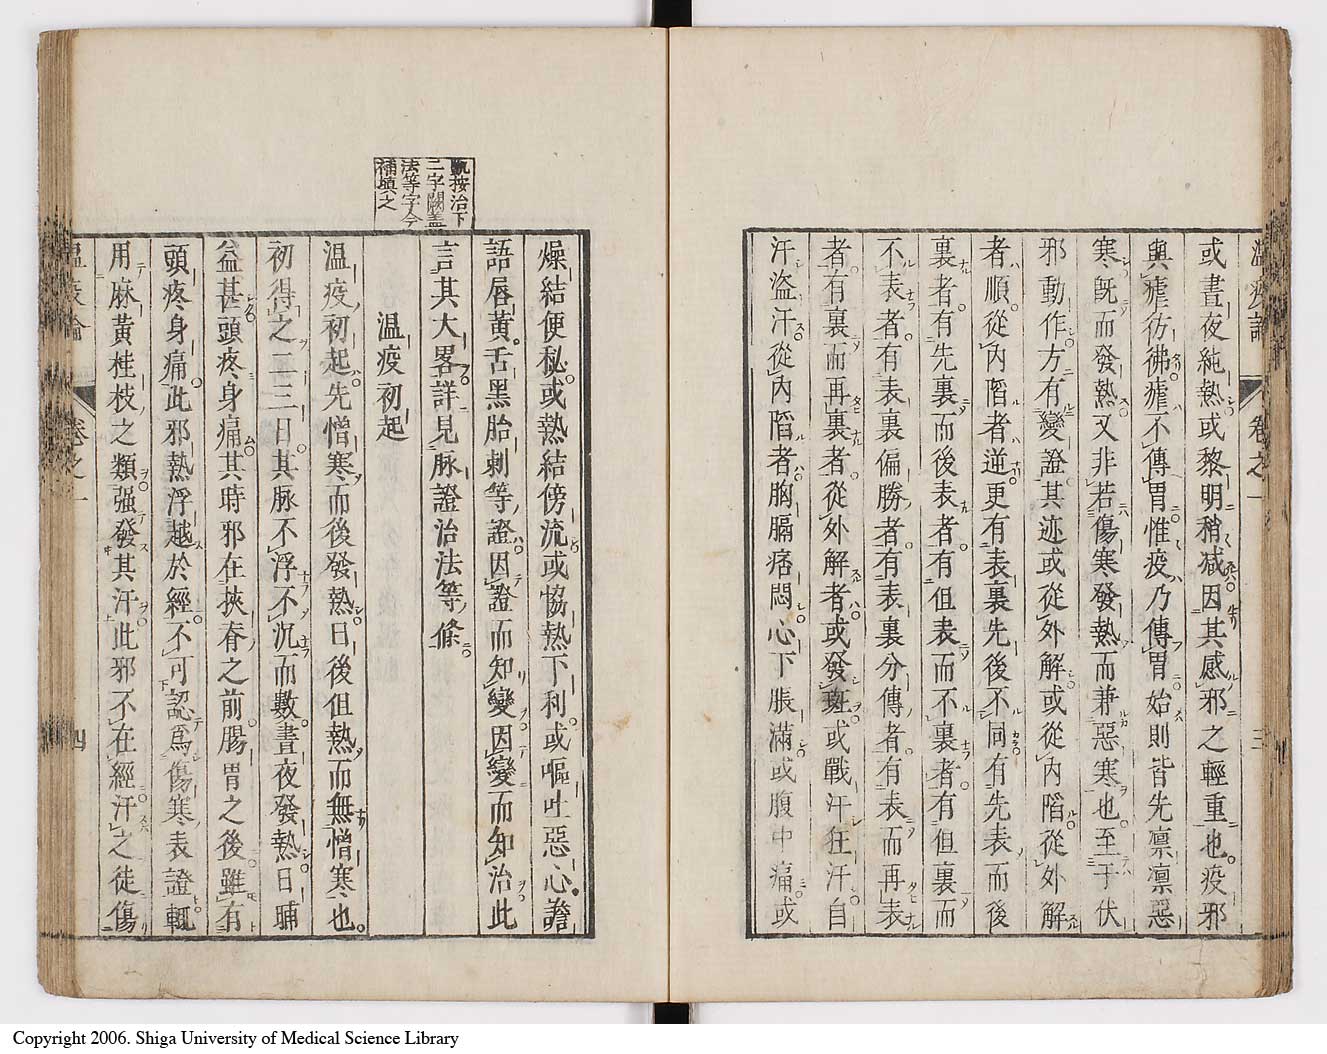 溫疫論 卷之一 三
或晝夜純熱或黎明稍减因其感邪之輕重也疫邪
與瘧彷彿瘧不傳胃惟疫乃傳胃始則皆先凛凛惡
寒旣而發熱又非若傷寒發熱而兼惡寒也至于伏
邪動作方有變證其迹或從外解或從內陷從外解
者順從內陷者逆更有表裏先後不同有先表而後
裏者有先裏而後表者有但表而不裏者有但裏而
不表者有表裏偏勝者有表裏分傳者有表而再表
者有裏而再裏者從外解者或發斑或戰汗狂汗自
汗盜汗從內陷者胸膈痞悶心下脹滿或腹中痛或
燥結便秘或熱結傍流或恊熱下利或嘔吐惡心譫
語唇黄舌黑胎刺等證因證而知變因變而知治此
言其大畧詳見脉證治法等條
按治下
二字闕蓋
法等字今
補塡之
溫疫初起
溫疫初起先憎寒而後發熱日後但熱而無憎寒也
初得之二三日其脉不浮不沉而數晝夜發熱日晡
益甚頭疼身痛其時邪在挾脊之前腸胃之後雖有
頭疼身痛此邪熱浮越於經不可認爲傷寒表證輒
用麻黄桂枝之類强發其汗此邪不在經汗之徒傷
溫疫論 卷之一 四
Copyright 2006. Shiga University of Medical Science Library